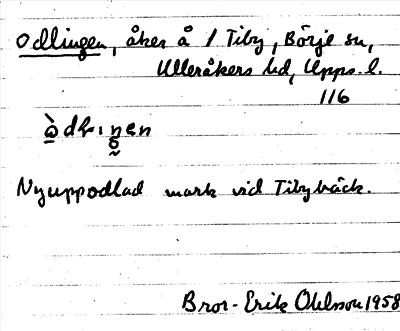 Odlingen, åker å / Tiby, Börje sn,
Ulleråkers hd, Upps. l.
116
Nyuppodlad mark vid Tibybäck.
Bror-Erik Ohlsson 1958